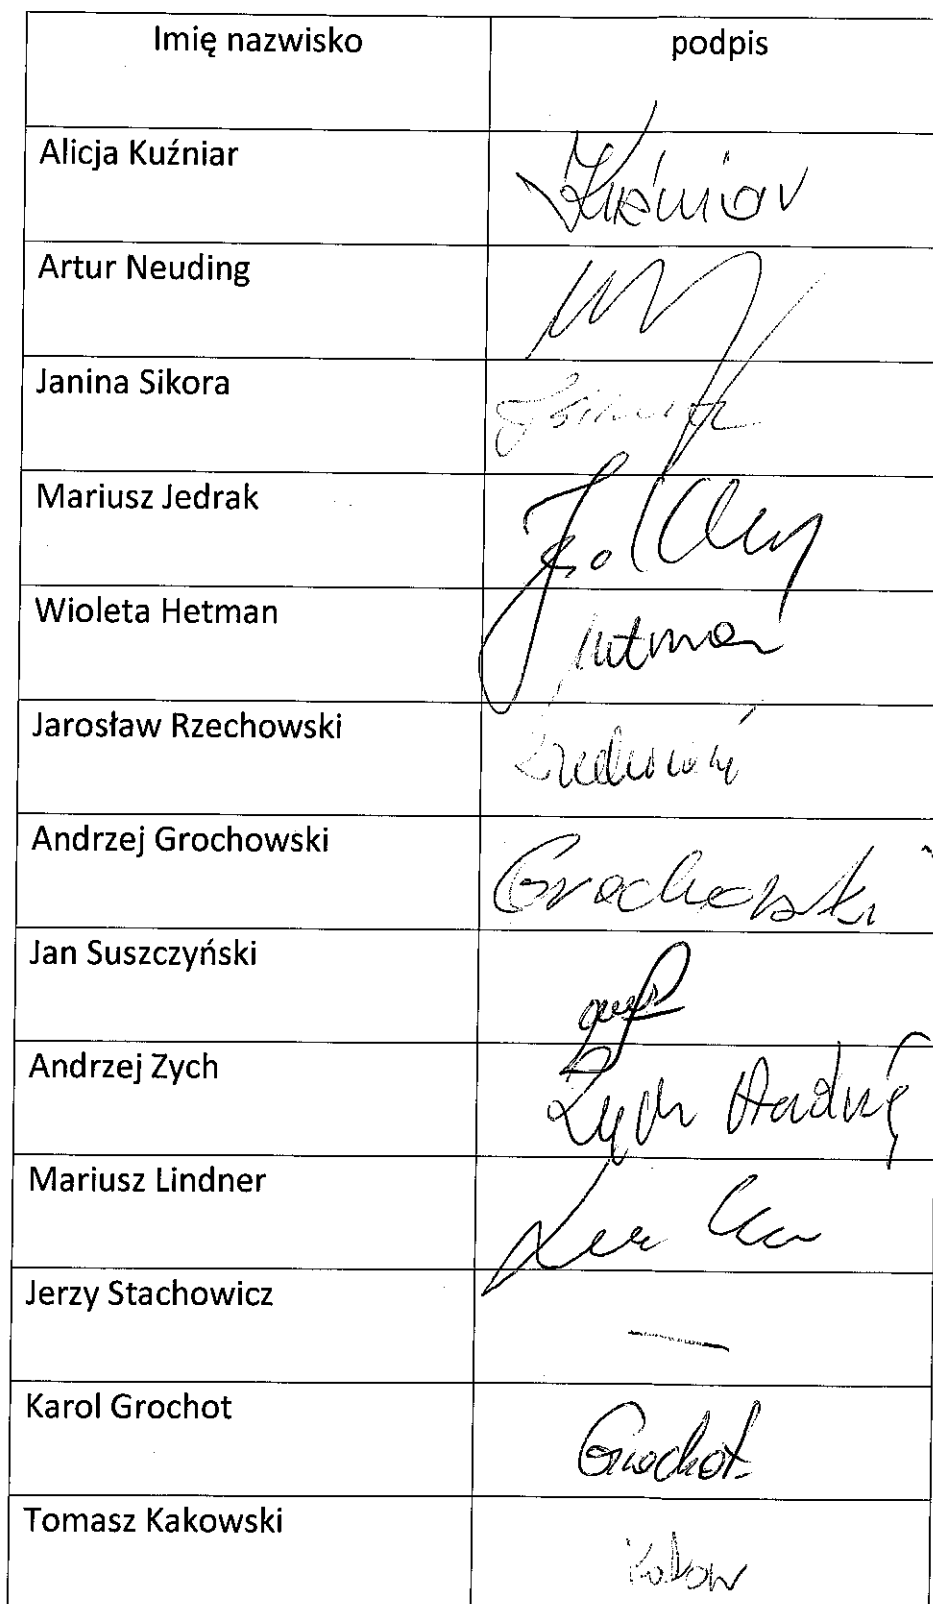 Imię nazwisko podpis
Alicja Kuźniar Kuźniar
Artur Neuding
Janina Sikora
Mariusz Jedrak
Wioleta Hetman
Jarosław Rzechowski
Andrzej Grochowski Grochowski
Jan Suszczyński
Andrzej Zych Zych Andrzej
Mariusz Lindner
Jerzy Stachowicz —
Karol Grochot Grochot
Tomasz Kakowski